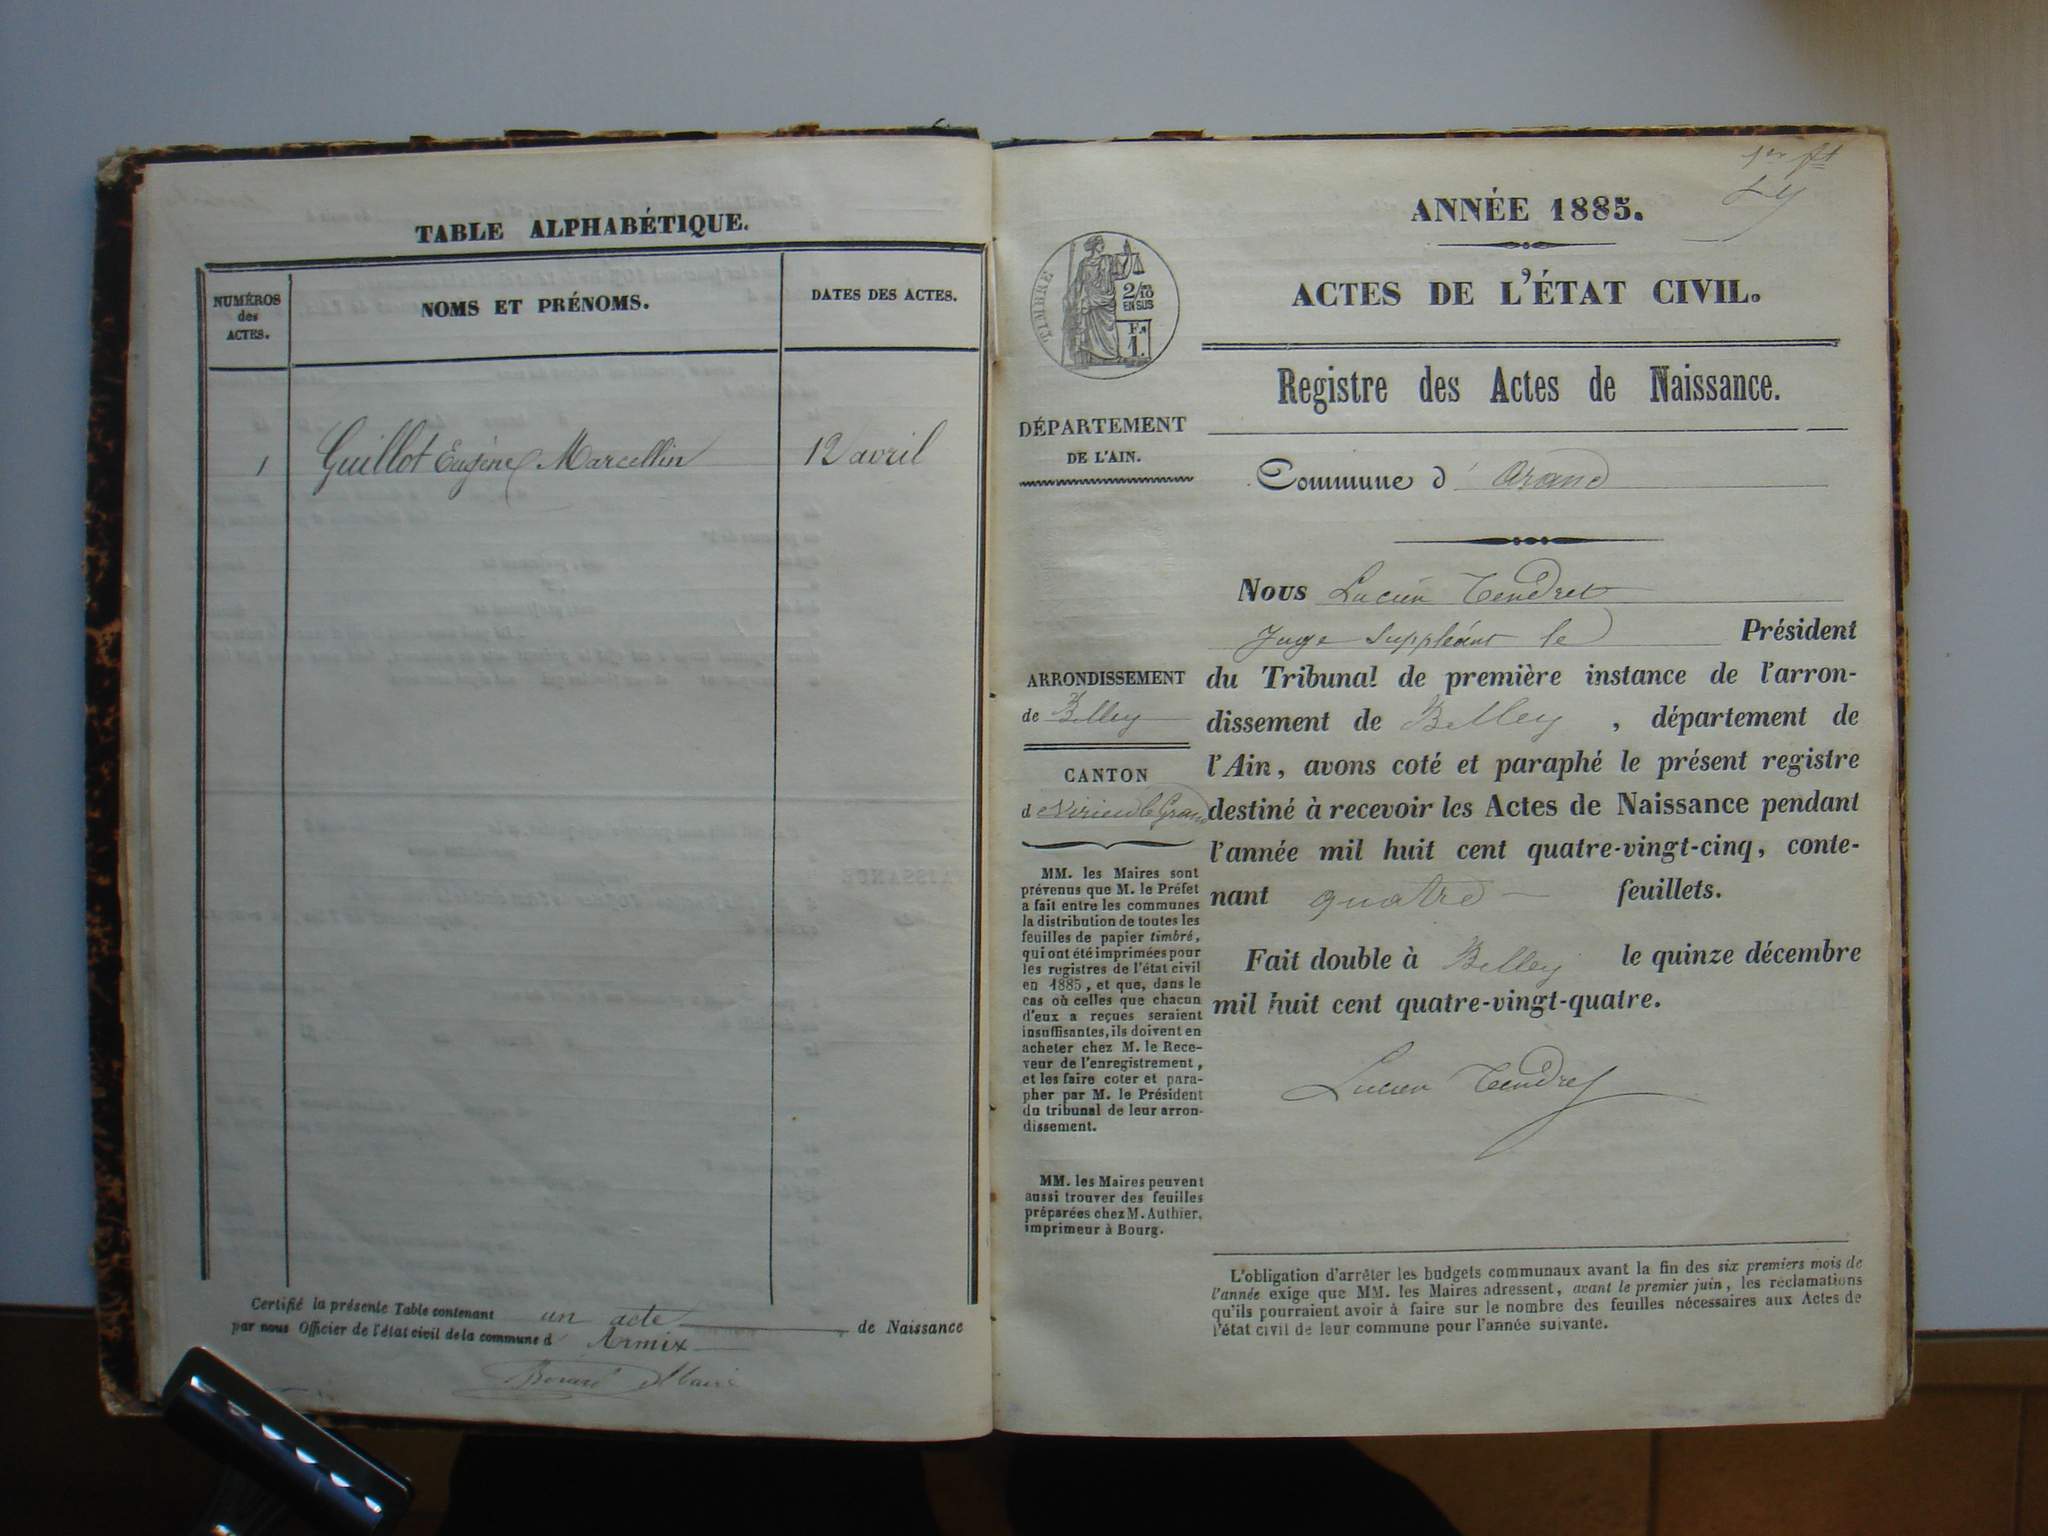 TABLE ALPHABÉTIQUE.
NUMÉROS
des
ACTES.
NOMS ET PRÉNOMS.
DATES DES ACTES.
1 Guillot Eugène Marcellin 12 avril
Certifié la présente Table contenant un acte de Naissance
par nous Officier de l'état civil de la commune d' Armix
Maire
1er ft
ANNÉE 1885.
ACTES DE L'ÉTAT CIVIL.
TIMBRE
2/10
EN SUS
Fc
1.
Registre des Actes de Naissance.
DÉPARTEMENT
DE L'AIN.
Commune d' Arand
Nous Lucien Tendret
Juge Suppléant le Président
du Tribunal de première instance de l'arron-
dissement de Belley, département de
l'Ain, avons coté et paraphé le présent registre
destiné à recevoir les Actes de Naissance pendant
l'année mil huit cent quatre-vingt-cinq, conte-
nant quatre feuillets.
Fait double à Belley le quinze décembre
mil huit cent quatre-vingt-quatre.
Lucien Tendret
ARRONDISSEMENT
de Belley
CANTON
de Virieu le Grand
MM. les Maires sont
prévenus que M. le Préfet
a fait entre les communes
la distribution de toutes les
feuilles de papier timbré,
qui ont été imprimées pour
les registres de l'état civil
en 1885, et que, dans le
cas où celles que chacun
d'eux a reçues seraient
insuffisantes, ils doivent en
acheter chez M. le Rece-
veur de l'enregistrement,
et les faire coter et para-
pher par M. le Président
du tribunal de leur arron-
dissement.
MM. les Maires peuvent
aussi trouver des feuilles
préparées chez M. Authier,
imprimeur à Bourg.
L'obligation d'arrêter les budgets communaux avant la fin des six premiers mois de
l'année exige que MM. les Maires adressent, avant le premier juin, les réclamations
qu'ils pourraient avoir à faire sur le nombre des feuilles nécessaires aux Actes de
l'état civil de leur commune pour l'année suivante.